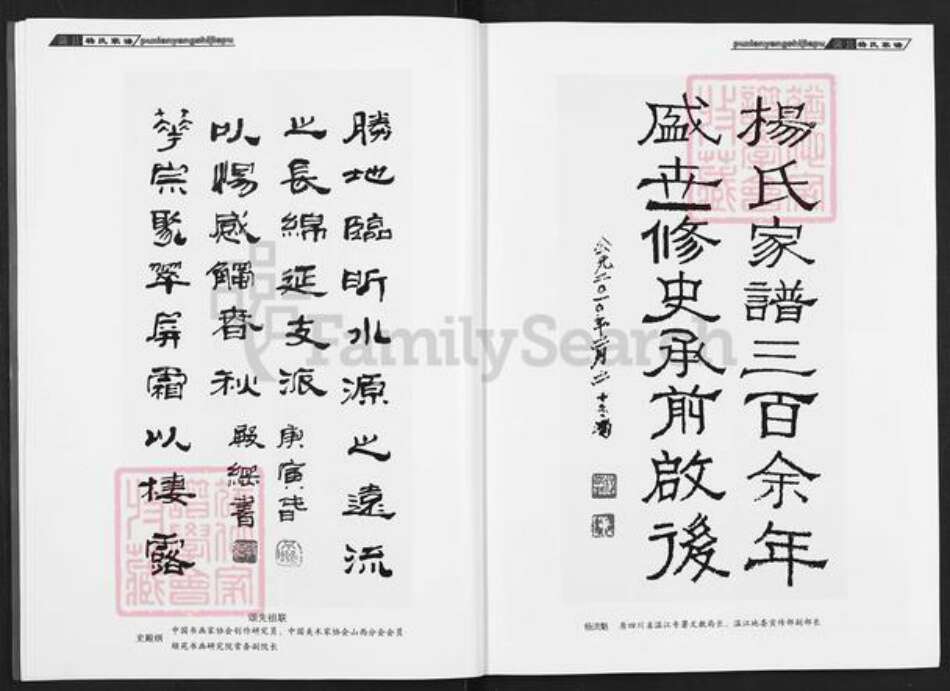 杨氏家谱
puxianyangshijiapu
勝地臨昕水源之遠流
之長綿延支派
庚寅
華宗聚翠屏霜以棲露
以惕感觸春秋
殿綱書
颂先祖联
史殿纲 中国书画家协会创作研究员、中国美术家协会山西分会会员
颐苑书画研究院常务副院长
puxianyangshijiapu
杨氏家谱
楊氏家譜三百余年
盛世修史承前啟後
公元二〇一〇年二月二十
原四川省温江专署文教局长、温江地委宣传部副部长
FamilySearch